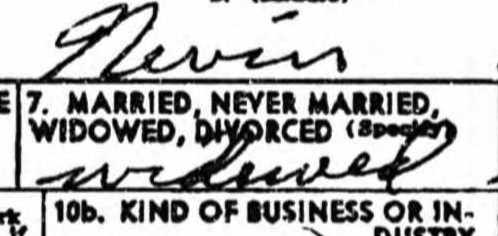 Nevin
E 7. MARRIED, NEVER MARRIED,
WIDOWED, DIVORCED (Specify)
widowed
10b. KIND OF BUSINESS OR IN-
DUSTRY